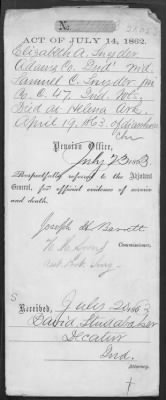 N.
ACT OF JULY 14, 1862.
Elizabeth A. Snyder
Adams Co. Ind. Wid
Samuel C. Snyder
Co. C. 47. Ind. Vols.
Died at Helena Ark.
April 19, 1863. of diarrhoea
Chr
Pension Office,
July 23 1863
Respectfully referred to the Adjutant
General, for official evidence of service
and death.
Joseph H. Barrett
Commissioner.
Received, July 20 1863
David Studabaker
Decatur
Ind.
Attorney